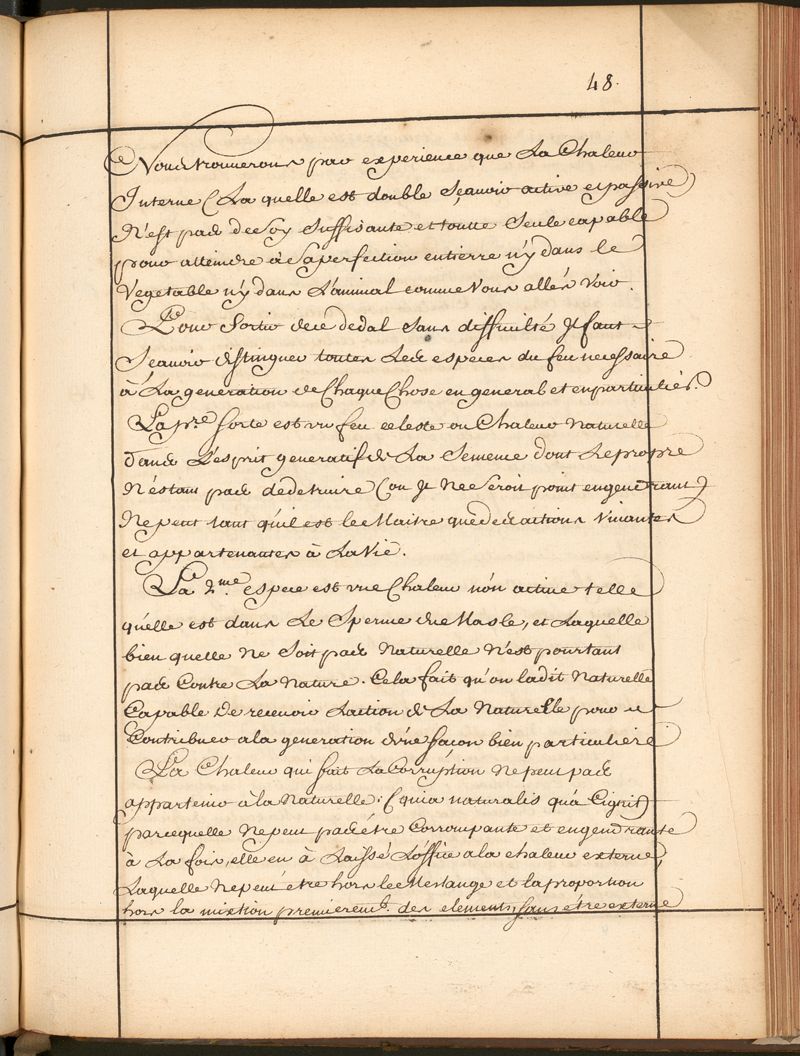 48.
Nous trouuerons par experience que La Chaleur
Interne (La quelle est double Sçauoir actiue et passiue)
N'est pas de soy suffisante et toutte seule capable
pour atteindre à sa perfection entierre n'y dans le
Vegetable n'y dans L'animal comme Vous allés Voir.
Pour Sortir de ce dedal sans difficulté Jl faut
Sçauoir distinguer toutes Les especes du feu necessaire
à La generation de Chaque Chose en general et en particuliér.
La p.re sorte est vn feu celeste ou Chaleur Naturelle
dans L'esprit generatif de La Semence dont Le propre
N'estant pas de detruire (ou Jl Ne Seroit point engendrant)
Ne peut tant qu'il est le Maitre que des actions Viuantes
et appartenantes à La Vie.
La 2.me espece est vne Chaleur nón actiue telle
qu'elle est dans Le Sperme du Masle, et Laquelle
bien quelle Ne Soit pas Naturelle N'est pourtant
pas Contre La Nature. Cela fait qu'on la dit Naturelle
Capable de receuoir L'action de La Naturelle pour
Contribuer a la generation d'vne facon bien particuliere
La Chaleur qui fait La Corruption Ne peut pas
appartenir à la Naturelle: (quia naturalis quà Gignit)
parcequelle Ne peut pas étre Corrompante et engendrante
à La fois, elle en à Laissé L'office a la chaleur externe,
Laquelle Ne peut étre hors le Meslange et la proportion
hors la mixtion premierem.t des elements, sans étre externe